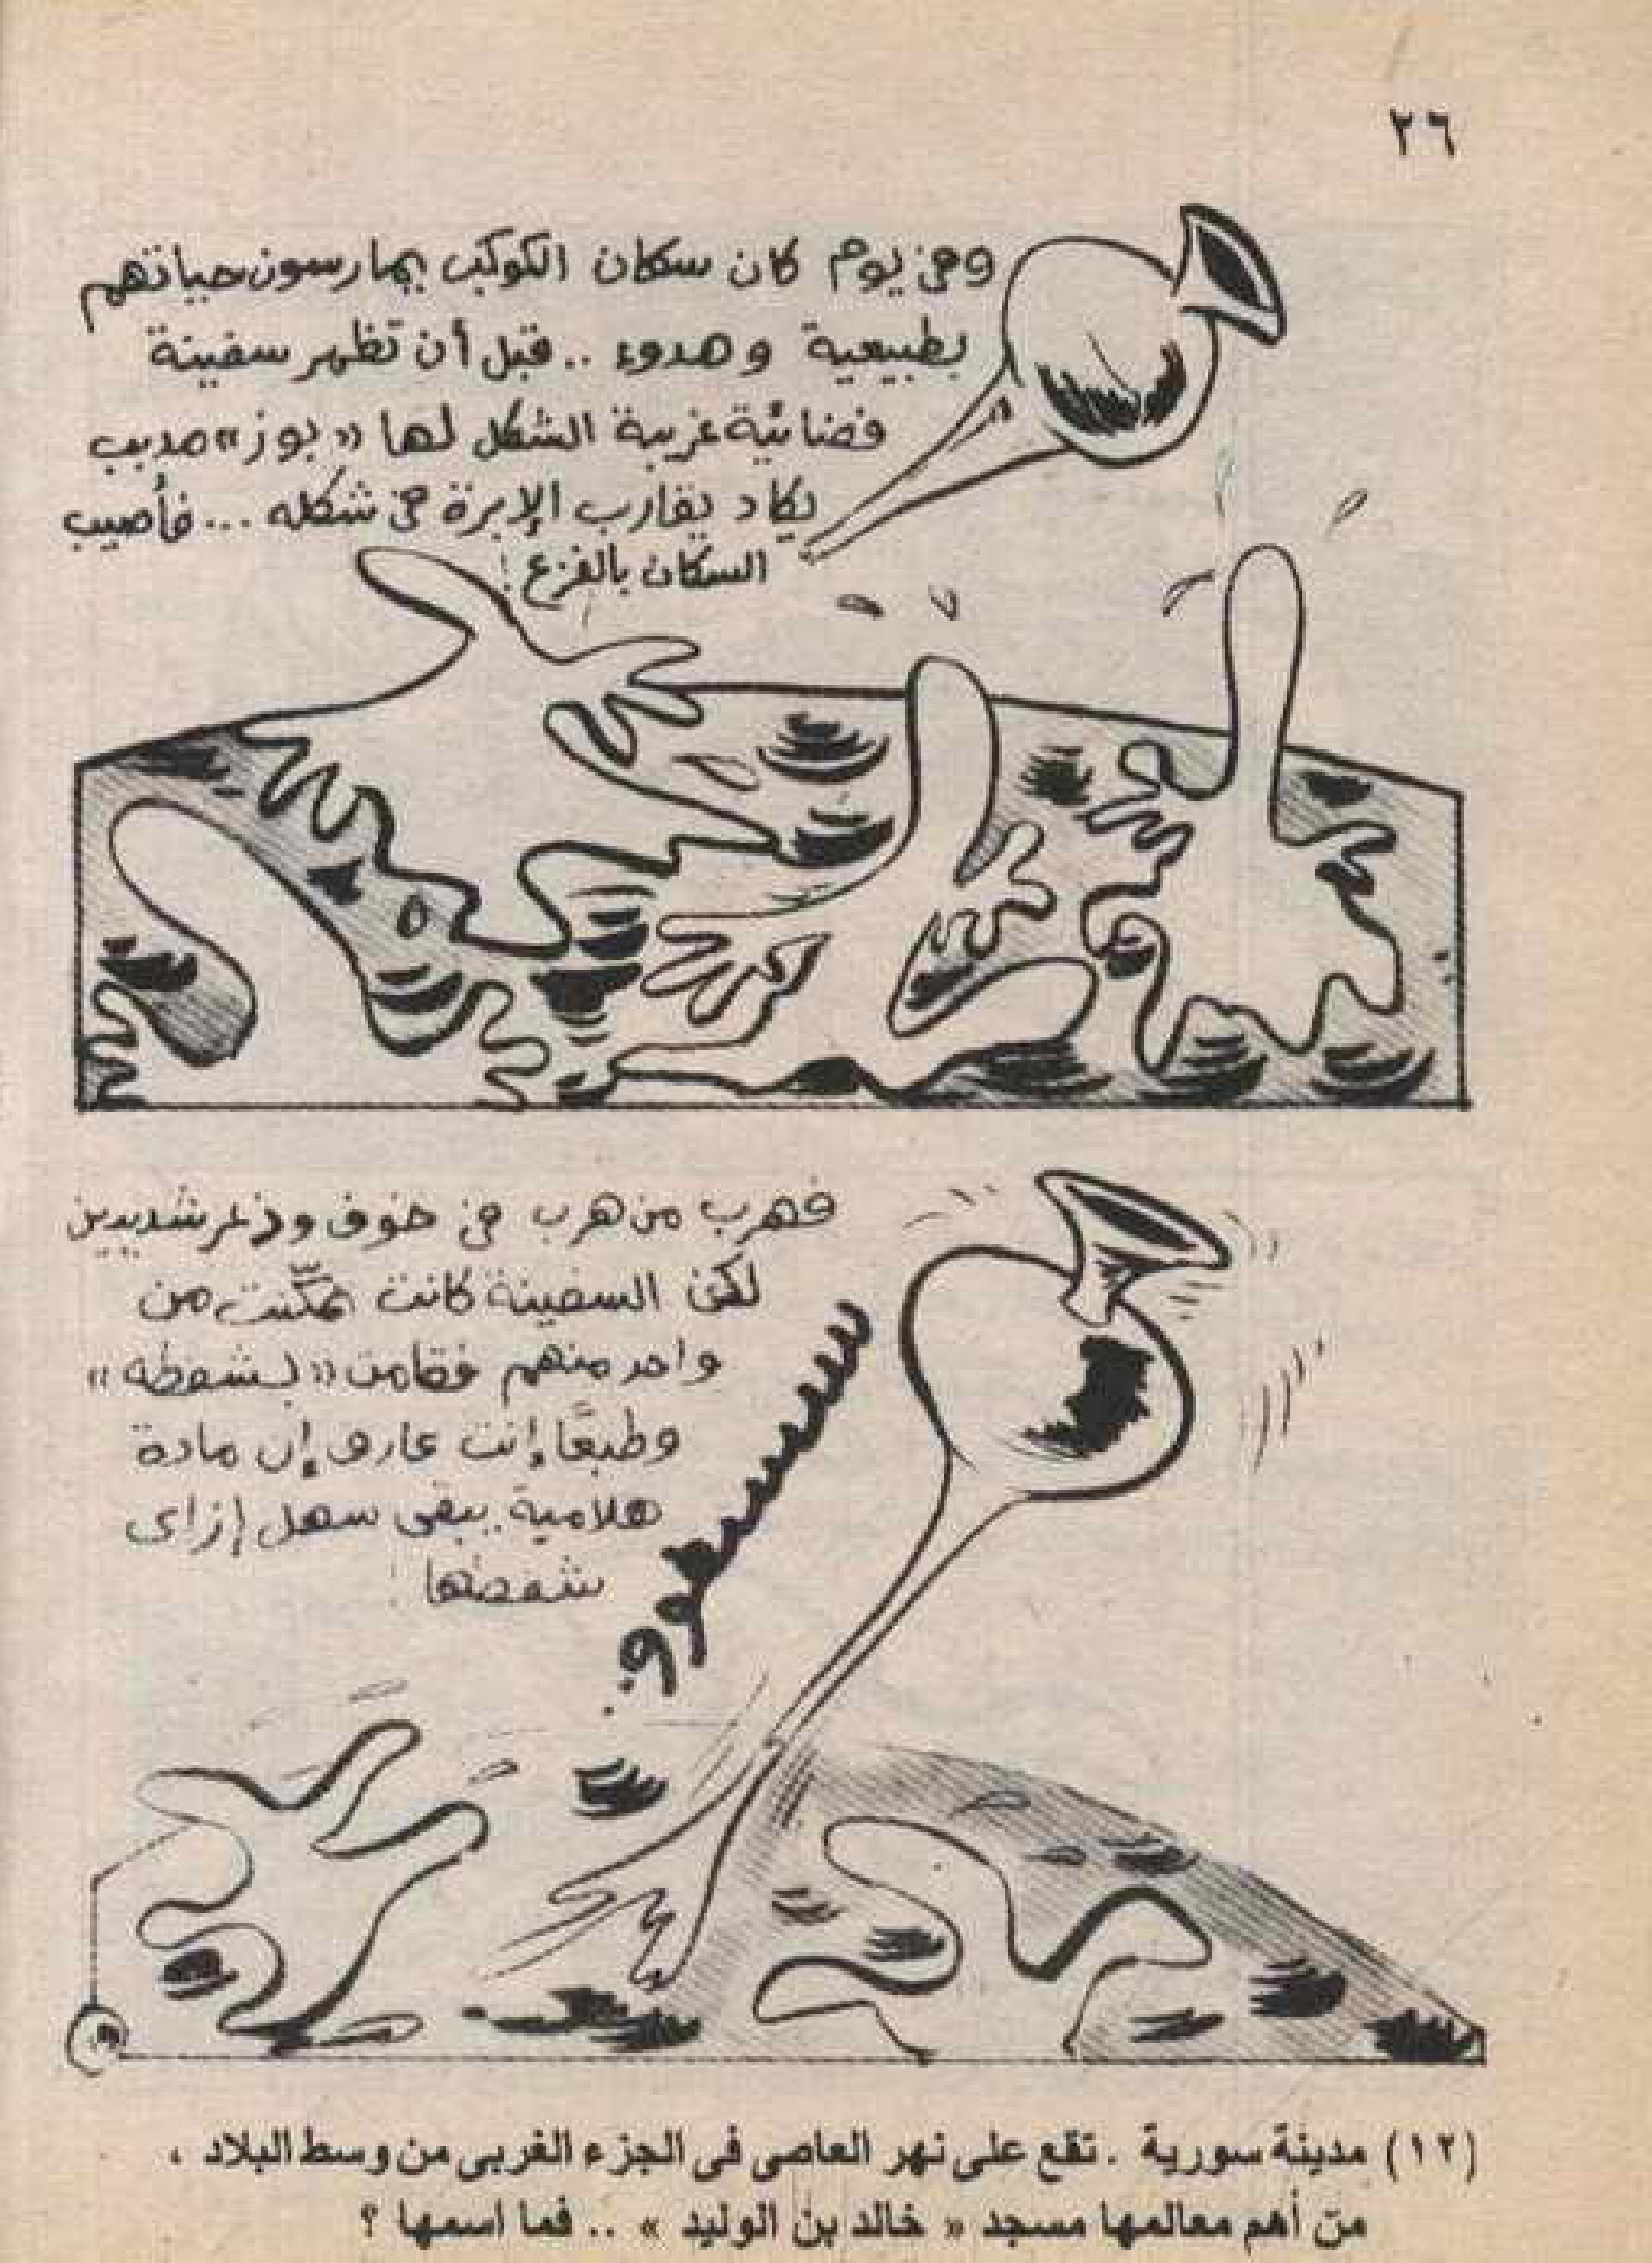 ٢٦
وفى يوم كان سكان الكوكب يمارسون حياتهم
بطبيعية وهدوء .. قبل أن تظهر سفينة
فضائية غريبة الشكل لها «بوز» مدبب
يكاد يقارب الإبرة فى شكله ... فأصيب
السكان بالفزع !
فهرب من هرب فى خوف وذعر شديدين
لكن السفينة كانت تمكّنت من
واحد منهم فقامت «بشفطه»
وطبعًا إنت عارف إن مادة
هلامية يبقى سهل إزاى
شفطها !
(١٢) مدينة سورية . تقع على نهر العاصى فى الجزء الغربى من وسط البلاد ،
من أهم معالمها مسجد « خالد بن الوليد » .. فما اسمها ؟